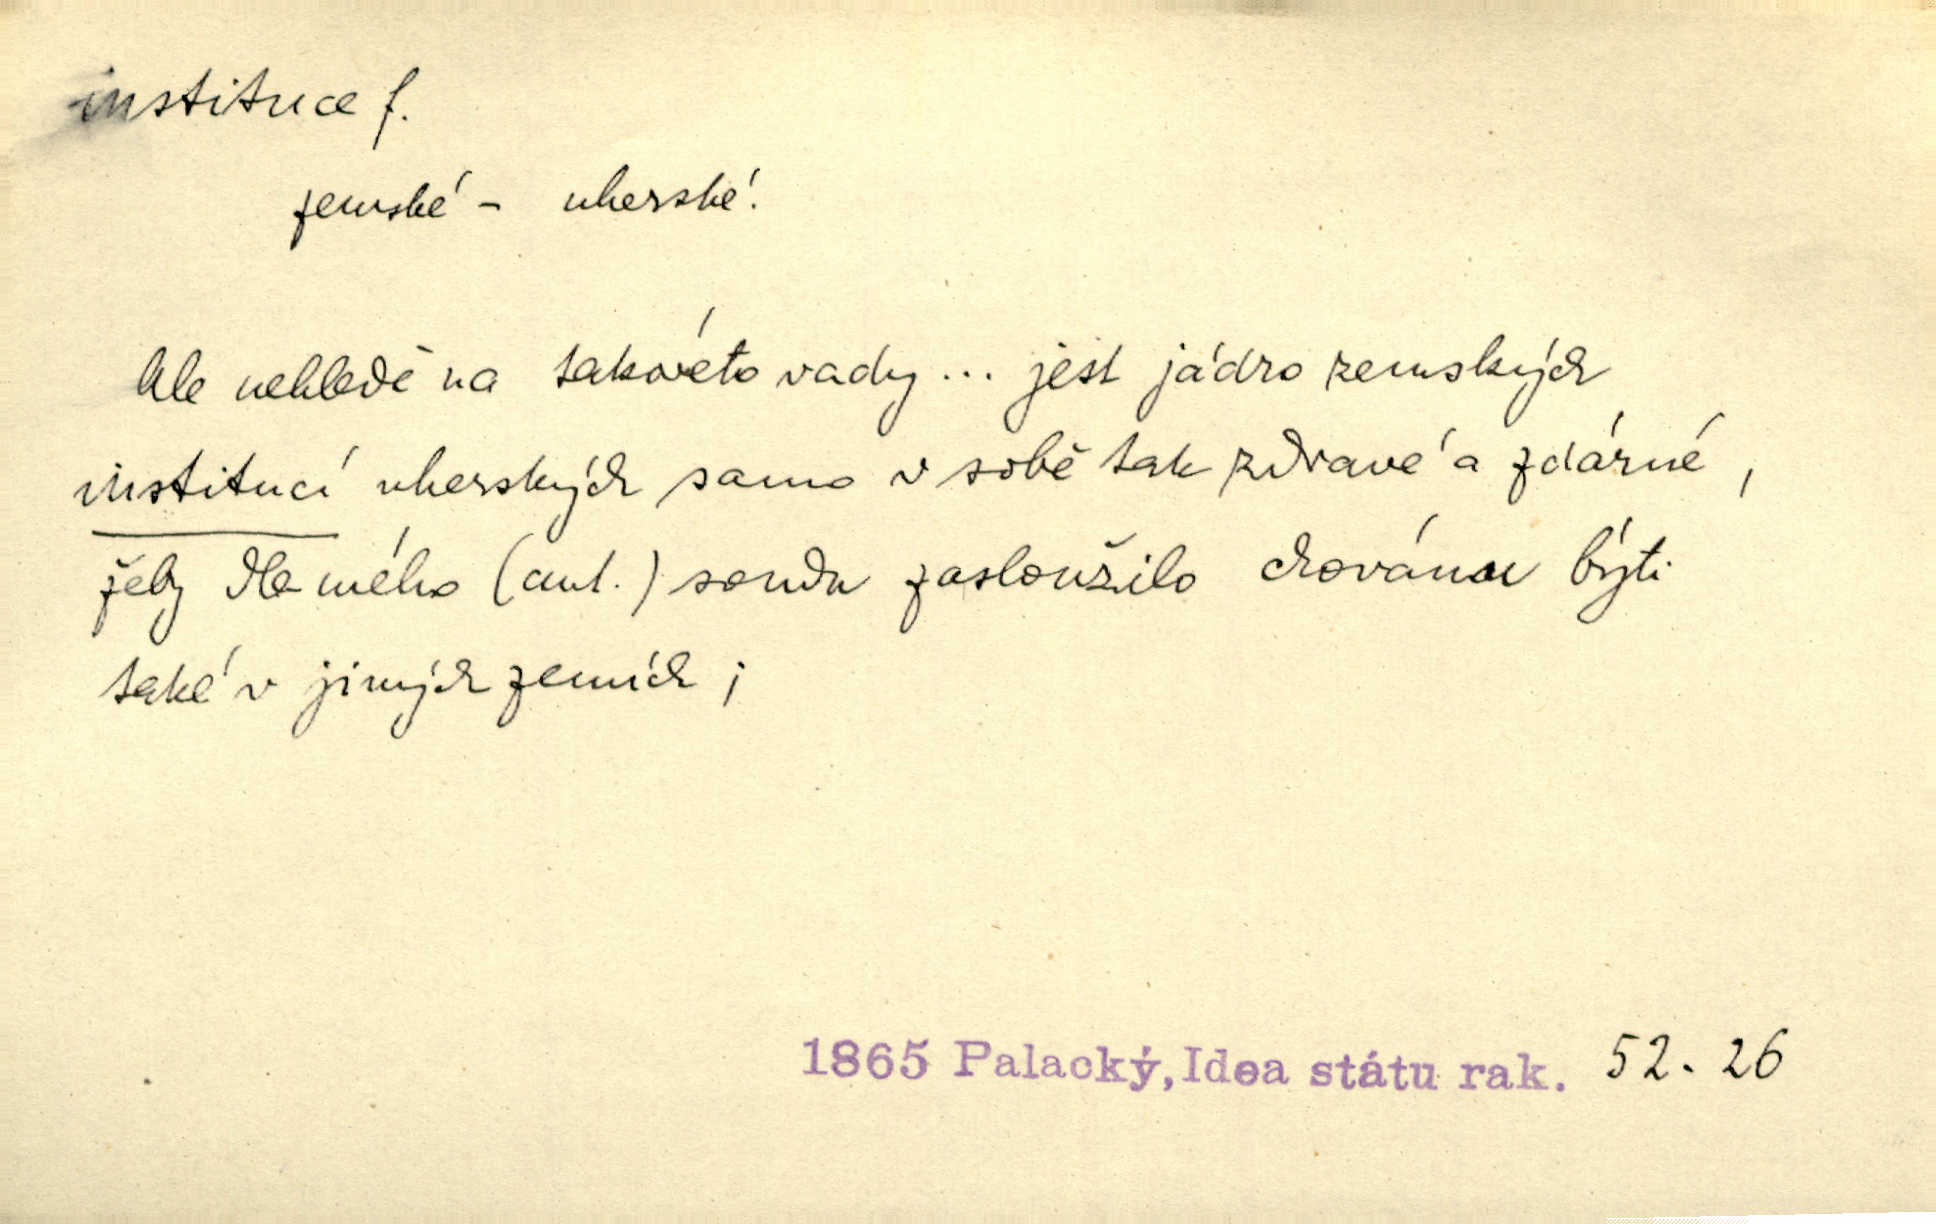 instituce f.
zemské - uherské.
Ale nehledě na takovéto vady ... jest jádro zemských
institucí uherských samo v sobě tak zdravé a zdárné,
žeby dle mého (aut.) soudu zasloužilo chovánu býti
také v jiných zemích;
1865 Palacký, Idea státu rak. 52. 26